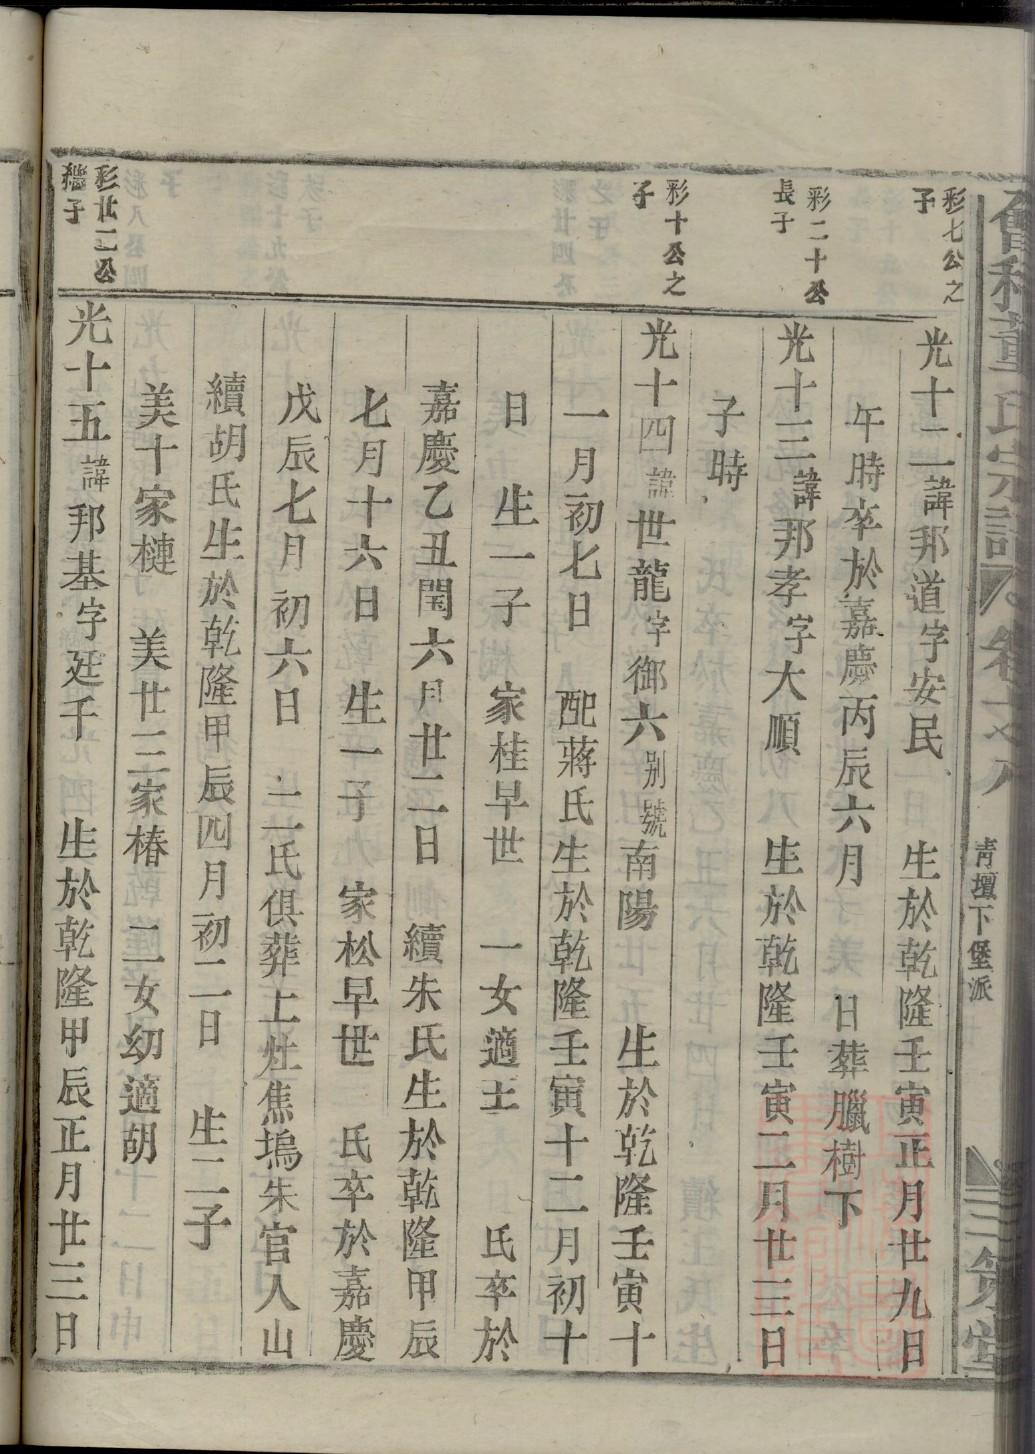 董氏宗譜
卷之八
青壇下堡派
三策堂
彩七公之
子
光十二諱邦道字安民 生於乾隆壬寅正月廿九日
午時卒於嘉慶丙辰六月 日葬臘樹下
彩二十公
長子
光十三諱邦孝字大順 生於乾隆壬寅二月廿三日
子時
彩十公之
子
光十四諱世龍字御六别號南陽 生於乾隆壬寅十
一月初七日 配蔣氏生於乾隆壬寅十二月初十
日 生一子 家桂早世 一女適王 氏卒於
嘉慶乙丑閏六月廿二日 續朱氏生於乾隆甲辰
七月十六日 生一子 家松早世 氏卒於嘉慶
戊辰七月初六日 二氏俱葬上灶焦塢朱官人山
續胡氏生於乾隆甲辰四月初二日 生二子
美十家槤 美廿三家椿 二女幼適胡
彩廿二公
繼子
光十五諱邦基字廷千 生於乾隆甲辰正月廿三日